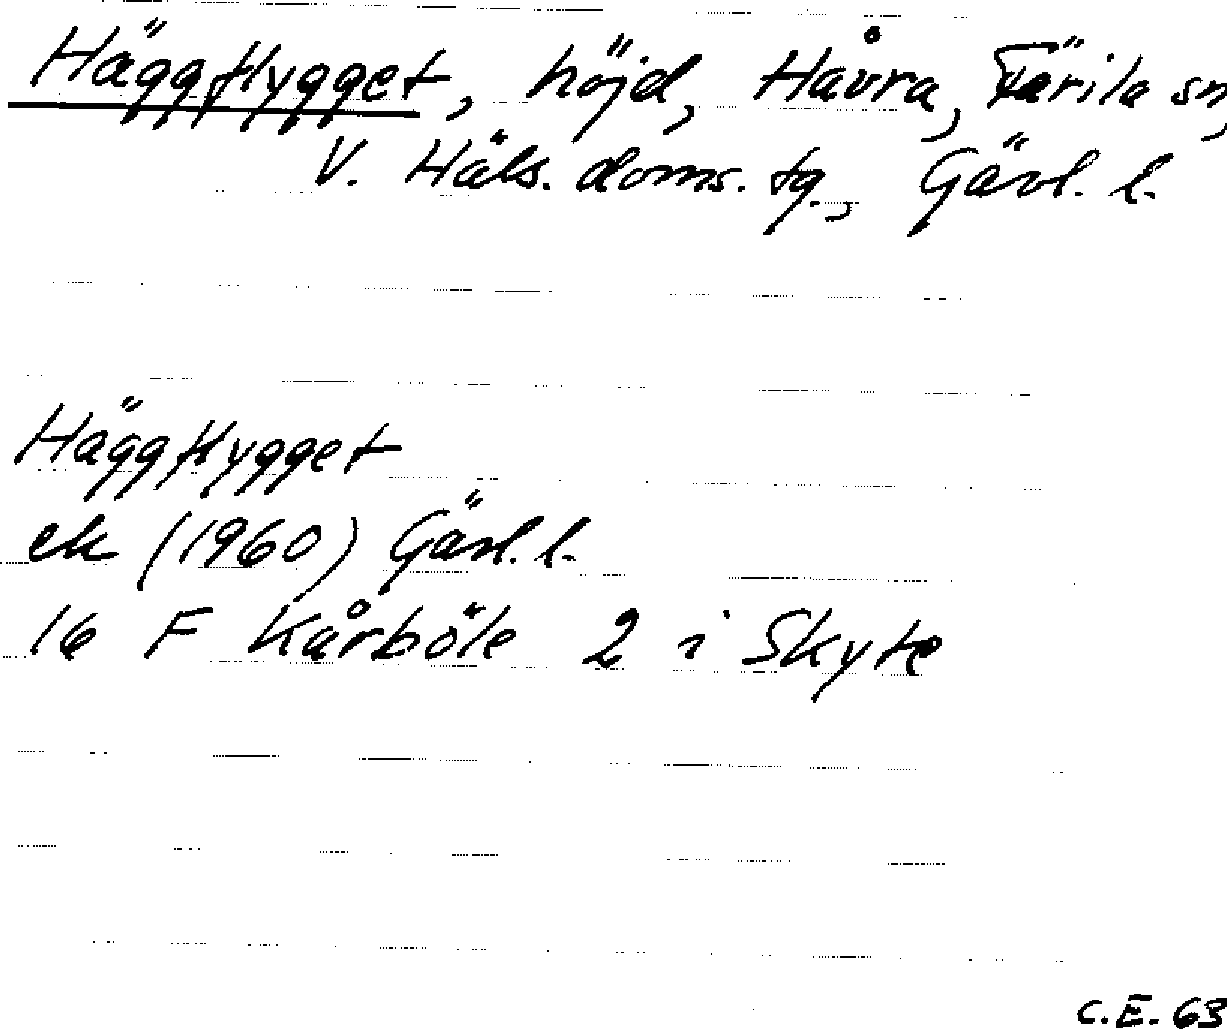 Häggflygget, höjd, Håvra, Färila sn,
V. Häls. doms. tg., Gävl. l.
Häggflygget
ek (1960) Gävl. l.
16 F Kårböle 2 i Skyte
C.E. 63